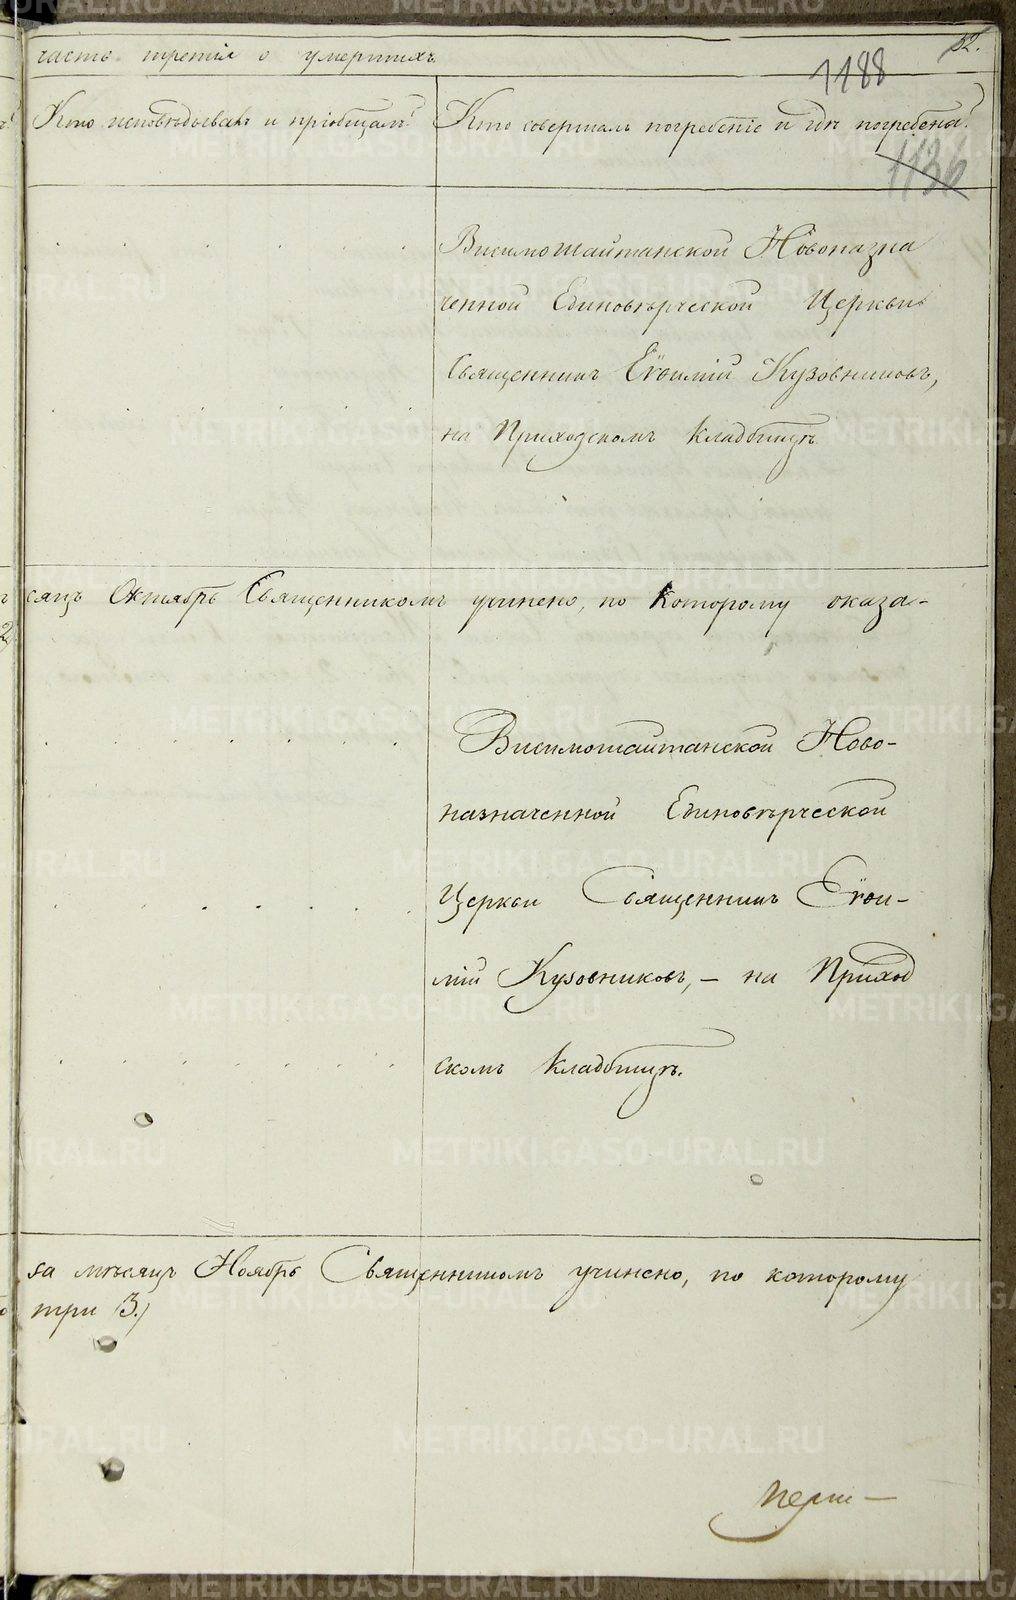 часть третія о умершихъ
32.
1188
Кто исповѣдывалъ и пріобщалъ?
Кто совершалъ погребеніе и гдѣ погребены?
1136
Висимошайтанской Новоназна
ченной Единовѣрческой Церкви
Священникъ Еѵѳимій Кузовниковъ,
на Приходскомъ кладбищѣ
сяцъ Октябрь Священникомъ учинено, по которому оказа-
Висимошайтанской Ново-
назначенной Единовѣрческой
Церкви Священникъ Еѵѳи-
мій Кузовниковъ, – на Приход
скомъ кладбищѣ.
за мѣсяцъ Ноябрь Священникомъ учинено, по которому
три 3.)
METRIKI.GASO-URAL.RU